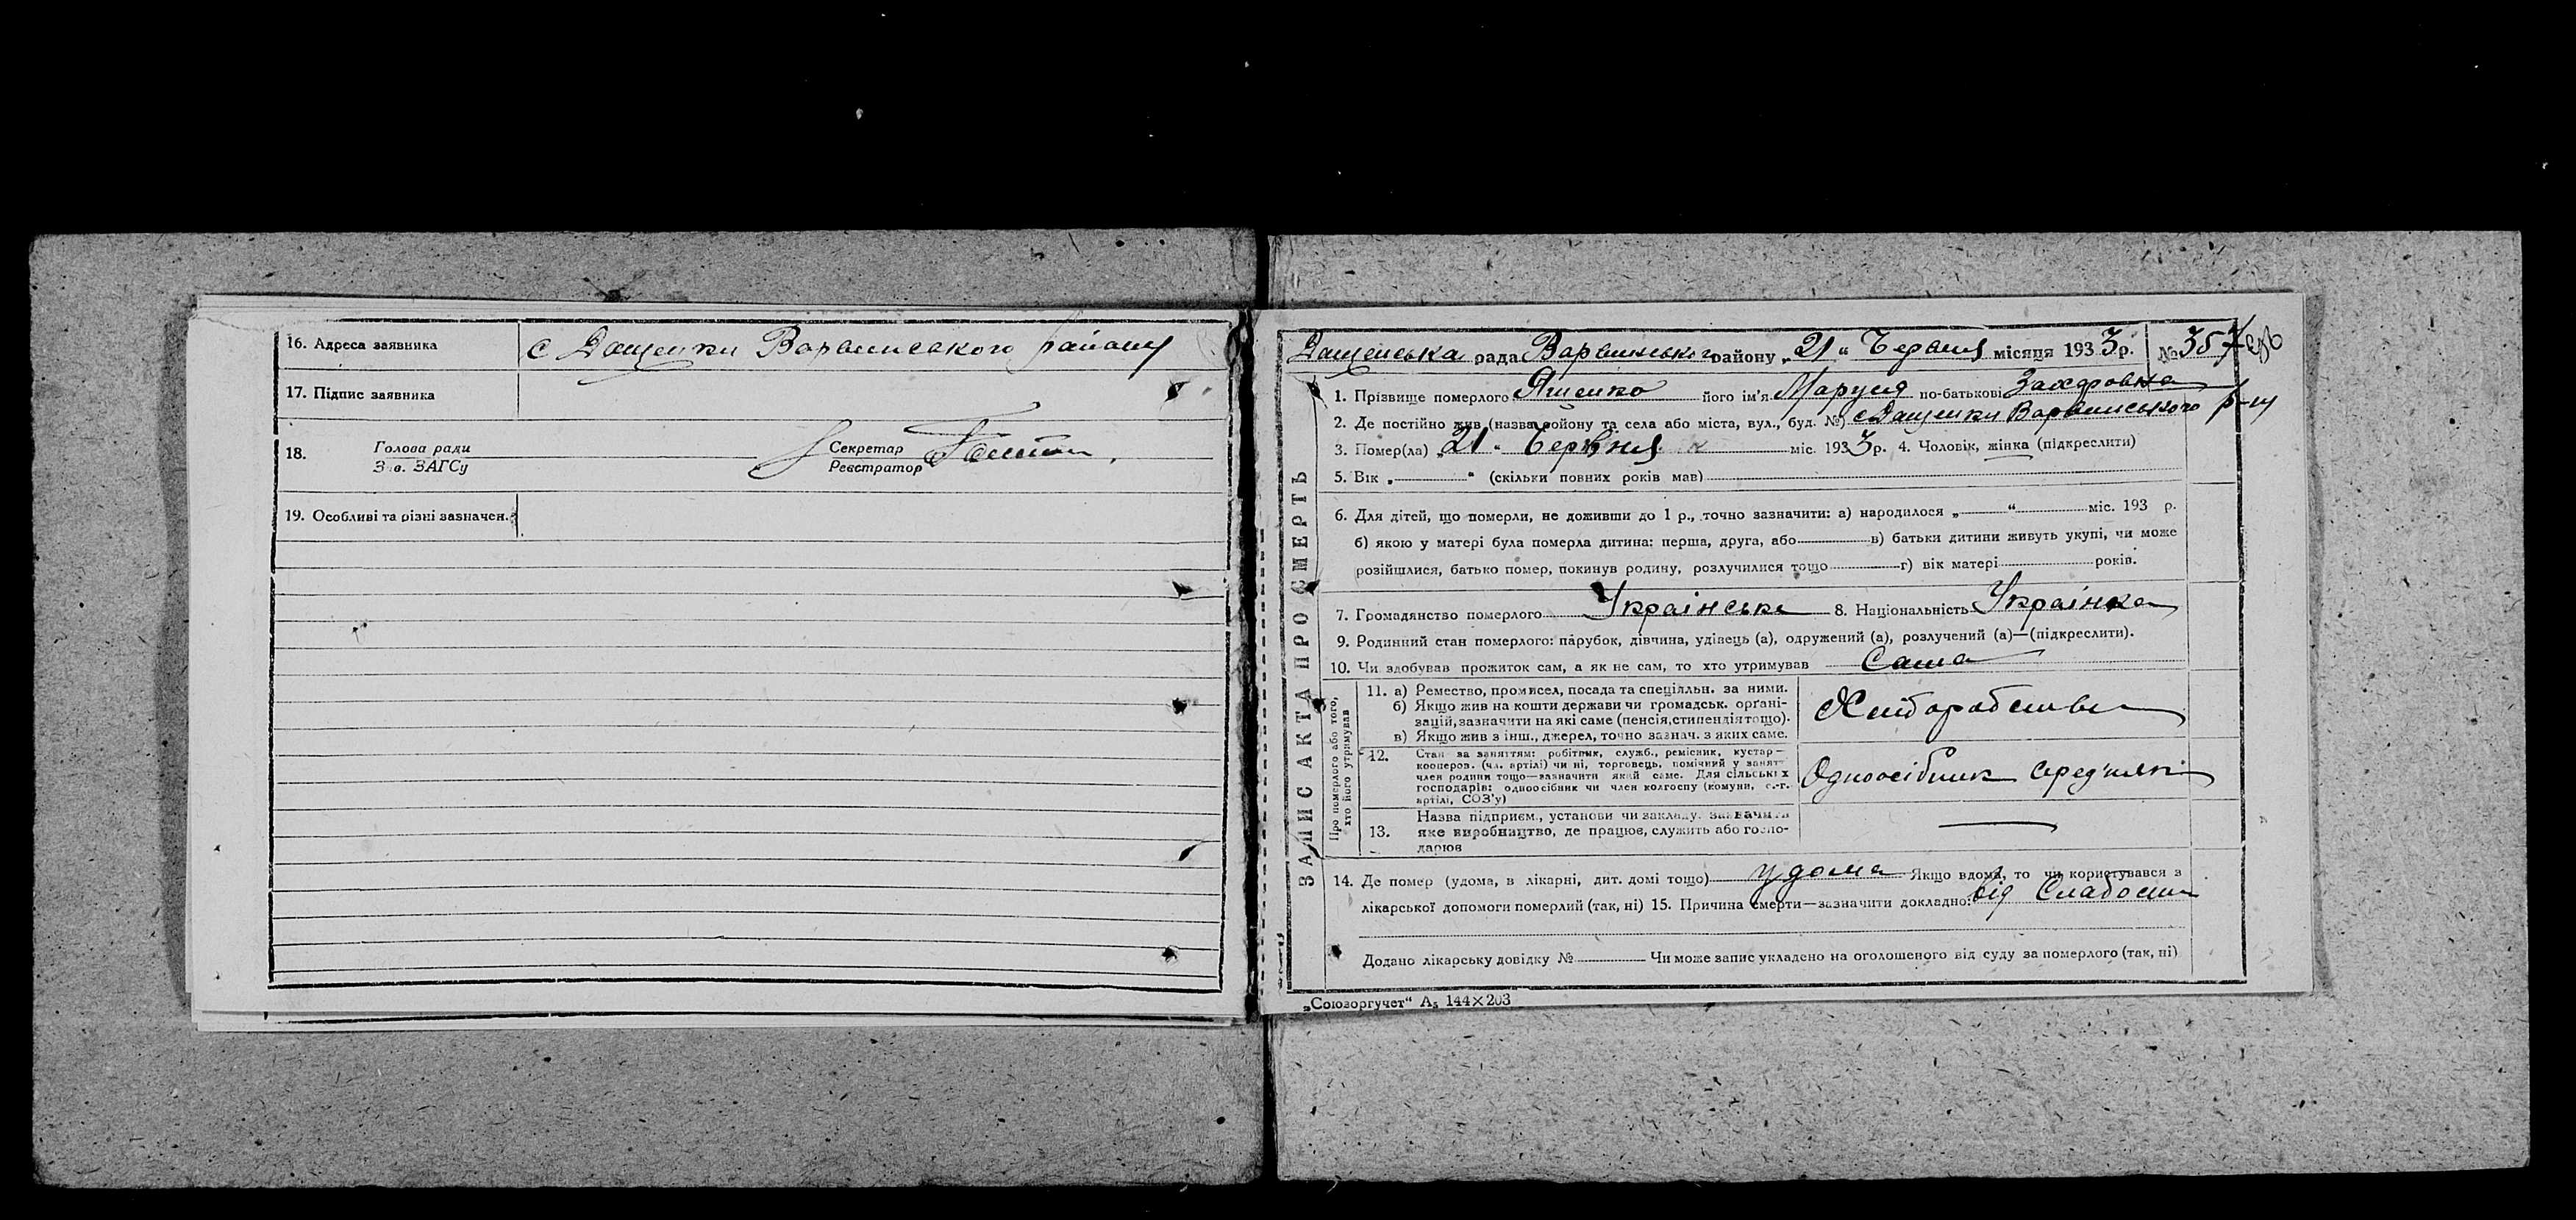 16. Адреса заявника с Дащенки Варвинського району
17. Підпис заявника
18. Голова ради Секретар
Зав. ЗАГСу Реєстратор
19. Особливі та різні зазначен.
Дащенська рада Варвинського району „21“ Червня місяця 1933 р. № 357
ЗАПИС АКТА ПРО СМЕРТЬ
1. Прізвище померлого Яценко його ім'я Маруся по-батькові Захаровна
2. Де постійно жив (назва району та села або міста, вул., буд. №) с Дащенки Варвинського р-ну
3. Помер(ла) „21“ Червня міс. 1933 р. 4. Чоловік, жінка (підкреслити)
5. Вік „ “ (скільки повних років мав)
6. Для дітей, що померли, не доживши до 1 р., точно зазначити: а) народилося „ “ міс. 193 р.
б) якою у матері була померла дитина: перша, друга, або в) батьки дитини живуть укупі, чи може
розійшлися, батько помер, покинув родину, розлучилися тощо г) вік матері років.
7. Громадянство померлого Українське 8. Національність Українка
9. Родинний стан померлого: парубок, дівчина, удівець (а), одружений (а), розлучений (а)—(підкреслити).
10. Чи здобував прожиток сам, а як не сам, то хто утримував Сама
Про померлого або того,
хто його утримував
11. а) Ремество, промисел, посада та спеціяльн. за ними.
б) Якщо жив на кошти держави чи громадськ. органі-
зацій, зазначити на які саме (пенсія, стипендія тощо).
в) Якщо жив з інш., джерел, точно зазнач. з яких саме.
Хліборобство
12. Стан за заняттям: робітник, служб., ремісник, кустар—
кооперов. (чл. артілі) чи ні, торговець, помічний у занят-
член родини тощо—зазначити який саме. Для сільських
господарів: одноосібник чи член колгоспу (комуни, с.-г.
артілі, СОЗ'у)
Одноосібник середняк
13. Назва підприєм., установи чи закладу, зазначити
яке виробництво, де працює, служить або госпо-
дарює
14. Де помер (удома, в лікарні, дит. домі тощо) удома Якщо вдома, то чи користувався з
лікарської допомоги померлий (так, ні) 15. Причина смерти—зазначити докладно: від Слабости
Додано лікарську довідку № Чи може запис укладено на оголошеного від суду за померлого (так, ні)
„Союзоргучет“ А₅ 144×203